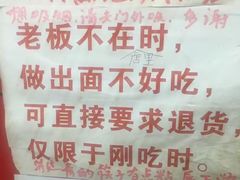 想吸烟,请去门外吸,多谢
老板不在时,
店里
做出面不好吃,
可直接要求退货,
仅限于刚吃时。